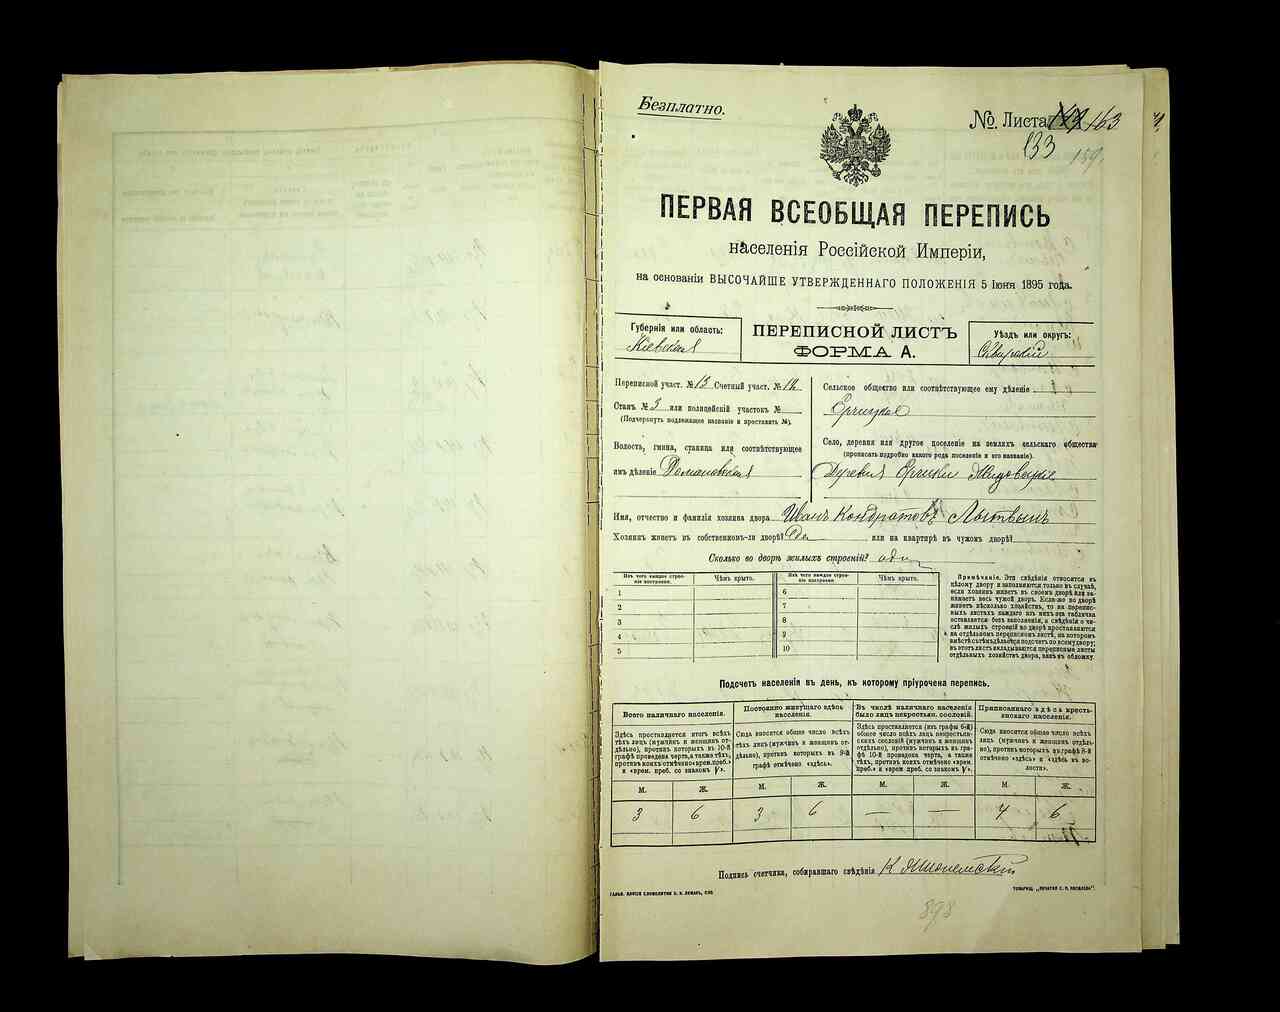 Безплатно.
№ Листа 163
133
159
ПЕРВАЯ ВСЕОБЩАЯ ПЕРЕПИСЬ
населенія Россійской Имперіи,
на основаніи ВЫСОЧАЙШЕ УТВЕРЖДЕННАГО ПОЛОЖЕНІЯ 5 Іюня 1895 года.
Губернія или область:
Кіевская
ПЕРЕПИСНОЙ ЛИСТЪ
ФОРМА А.
Уѣздъ или округъ:
Сквирскій
Переписной участ. № 13 Счетный участ. № 12
Станъ № 3 или полицейскій участокъ №
(Подчеркнуть подлежащее названіе и проставить №).
Волость, гмина, станица или соотвѣтствующее
имъ дѣленіе Романовская
Сельское общество или соотвѣтствующее ему дѣленіе
Ерчицкое
Село, деревня или другое поселеніе на земляхъ сельскаго общества
(прописать подробно какого рода поселеніе и его названіе).
Деревня Ерчики Жидовецкіе
Имя, отчество и фамилія хозяина двора Иванъ Кондратовъ Лытвынъ
Хозяинъ живетъ въ собственномъ-ли дворѣ? Да или на квартирѣ въ чужомъ дворѣ?
Сколько во дворѣ жилыхъ строеній? один
Изъ чего каждое строеніе построено. Чѣмъ крыто. Изъ чего каждое строеніе построено. Чѣмъ крыто.
1 6
2 7
3 8
4 9
5 10
Примѣчаніе. Эти свѣдѣнія относятся къ
цѣлому двору и заполняются только въ случаѣ,
если хозяинъ живетъ въ своемъ дворѣ или занимаетъ
весь чужой дворъ. Если-же во дворѣ
живетъ нѣсколько хозяйствъ, то на переписныхъ
листахъ каждаго изъ нихъ эта табличка
оставляется безъ заполненія, а свѣдѣнія о числѣ
жилыхъ строеній во дворѣ проставляются
на отдѣльномъ переписномъ листѣ, на которомъ
вмѣстѣ съ тѣмъ дѣлается подсчетъ по всему двору;
въ этотъ листъ вкладываются переписные листы
отдѣльныхъ хозяйствъ двора, какъ въ обложку.
Подсчетъ населенія въ день, къ которому пріурочена перепись.
Всего наличнаго населенія.
Здѣсь проставляется итогъ всѣхъ
тѣхъ лицъ (мужчинъ и женщинъ отдѣльно),
противъ которыхъ въ 10-й
графѣ проведена черта, а также тѣхъ,
противъ коихъ отмѣчено «врем. преб.»
и «врем. преб. со знакомъ V».
Постоянно живущаго здѣсь
населенія.
Сюда вносится общее число всѣхъ
тѣхъ лицъ (мужчинъ и женщинъ отдѣльно),
противъ которыхъ въ 9-й
графѣ отмѣчено «здѣсь».
Въ числѣ наличнаго населенія
было лицъ некрестьян. сословій.
Здѣсь проставляется (изъ графы 6-й)
общее число всѣхъ лицъ некрестьянскихъ
сословій (мужчинъ и женщинъ
отдѣльно), противъ которыхъ въ графѣ
10-й проведена черта, а также
тѣхъ, противъ коихъ отмѣчено «врем.
преб.» и «врем. преб. со знаком V».
Приписаннаго здѣсь крестьянскаго
населенія.
Сюда вносится общее число всѣхъ
лицъ (мужчинъ и женщинъ отдѣльно),
противъ которыхъ въ графѣ 8-й
отмѣчено «здѣсь» и «здѣсь въ волости».
М. Ж. М. Ж. М. Ж. М. Ж.
3 6 3 6 — — 4 6
Подпись счетчика, собиравшаго свѣдѣнія К
898